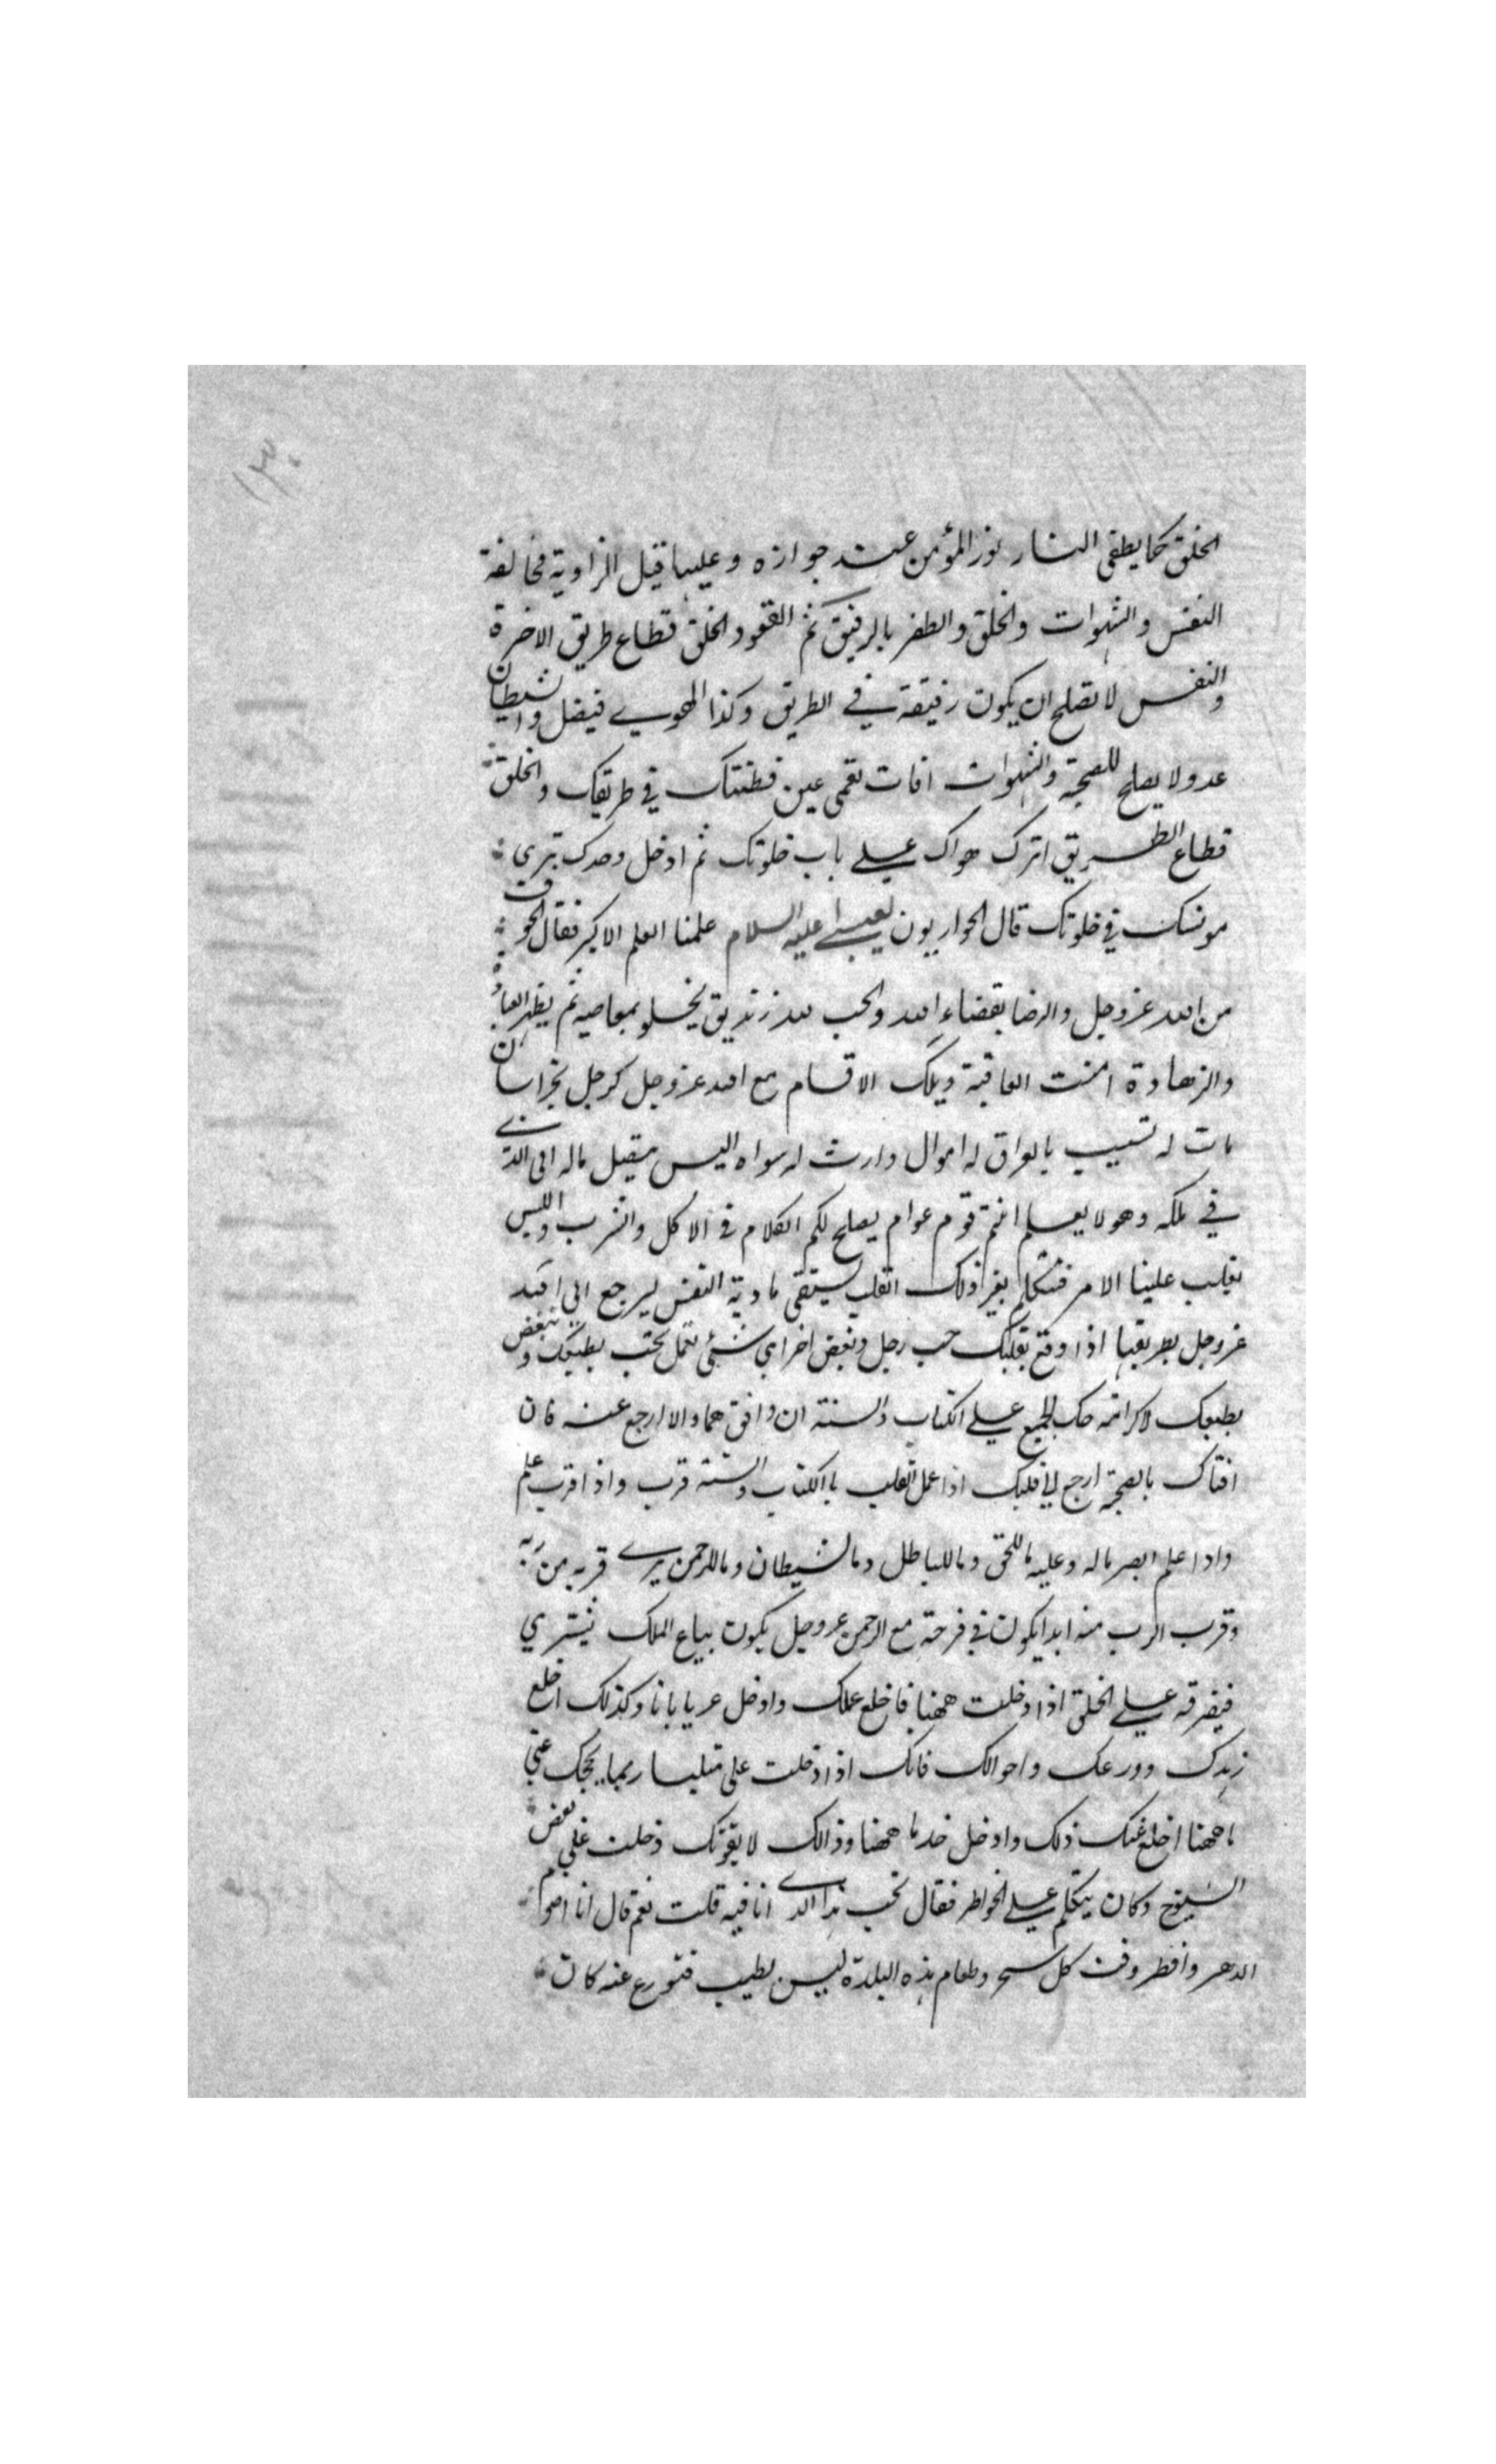 ١٣٠
الخلق كما يطفى النار نور المؤمن عند جوازه وعليها قيل الزاوية مخالفة
النفس والشهوات والخلق والظفر بالرفيق ثم القعود الخلق قطاع طريق الاخرة
والنفس لا تصلح ان يكون رفيقة في الطريق وكذا الهوى فيضل والشيطان
عدو لا يصلح للصحبة والشهوات افات تعمى عين فطنتك في طريقك والخلق
قطاع الطريق اترك هواك على باب خلوتك ثم ادخل وحدك ترى
مونسك في خلوتك قال الحواريون لعيسى عليه السلام علمنا العلم الاكبر فقال الخوف
من الله عز وجل والرضا بقضاء الله والحب لله زنديق يخلو بمعاصيه ثم يظهر العبادة
والزهادة امنت العاقبة ويلك الاقسام مع الله عز وجل كرجل بخراسان
مات له نسيب بالعراق له اموال وارث له سواه اليس ميقبل ماله الى الذي
في ملكه وهو لا يعلم انتم قوم عوام يصلح لكم الكلام في الاكل والشرب واللبس
يغلب علينا الامر فنتكلم بغير ذلك القلب يستقى ماوية النفس ليرجع الى الله
عز وجل بطريقها اذا وقع بقلبك حب رجل وبغض اخر اي شئ تعمل تحب بطبعك وتبغض
بطبعك لا كرامة حك الجميع على الكتاب والسنة ان وافق هما والا ارجع عنه فان
افتاك بالصحبة ارجع الى قلبك اذا عمل القلب بالكتاب والسنة قرب واذا قرب علم
واذا علم ابصر ماله وعليه ما للحق وما للباطل وما لشيطان وما للرحمن يرى قربه من ربه
وقرب الرب منه ابدا يكون في فرحة مع الرحمن عز وجل يكون بياع الملك يشترى
فيفرقه على الخلق اذا دخلت ههنا فاخلع عملك وادخل عريا بانا وكذلك اخلع
زهدك وورعك واحوالك فانك اذا دخلت على متلبسا ربما يحجبك عنى
ما ههنا اخلع عنك ذلك وادخل خد ما ههنا وذالك لا يفوتك دخلت على بعض
الشيوخ وكان يتكلم على الخواطر فقال تحب هذا الذي انا فيه قلت نعم قال انا اصوم
الدهر وافطر وقت كل سحر وطعام هذه البلدة ليس بطيب فتورع عنه كان